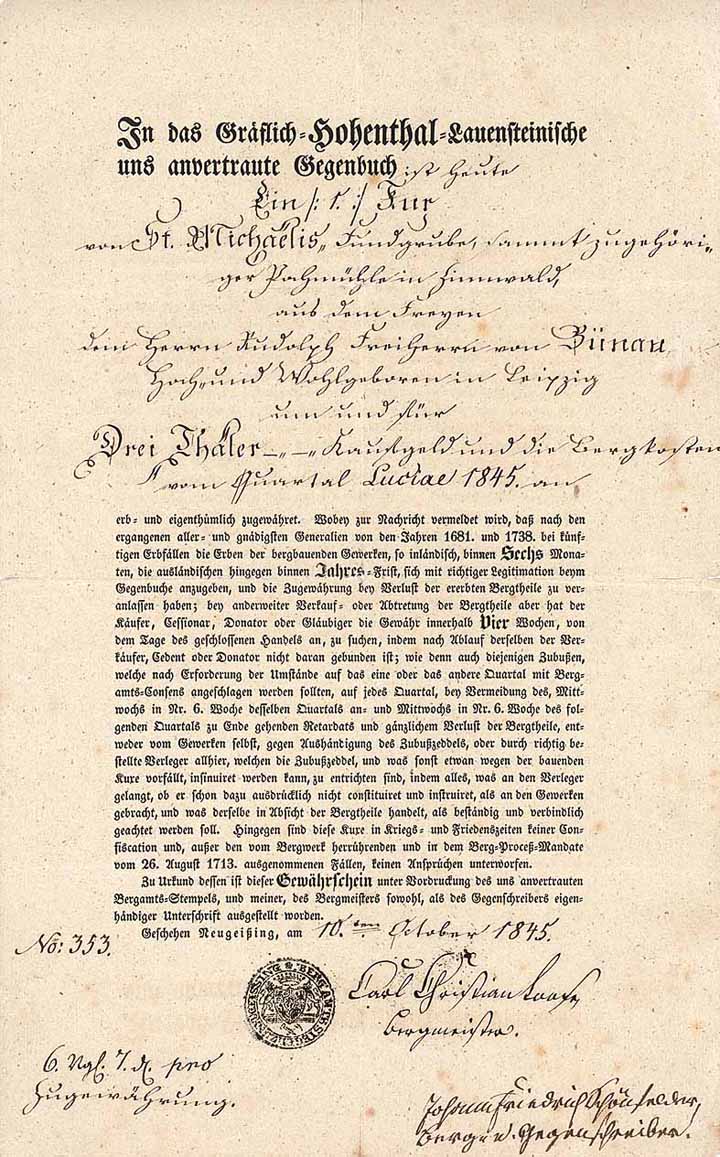 In das Gräflich-Hohenthal-Lauensteinische
uns anvertraute Gegenbuch ist heute
Ein /: 1. :/ Kux
von St. Michaelis„ Fundgrube, sammt zugehöri-
ger Pochmühle in Zinnwald,
aus dem Freyen
dem Herrn Rudolph Freiherrn von Bünau
Hoch- und Wohlgeboren in Leipzig
um und für
Drei Thaler -„-„- Kaufgeld und die Bergkosten
vom Quartal Luciae 1845. an
erb- und eigenthümlich zugewähret. Wobey zur Nachricht vermeldet wird, daß nach den
ergangenen aller- und gnädigsten Generalien von den Jahren 1681. und 1738. bei künf-
tigen Erbfällen die Erben der bergbauenden Gewerken, so inländisch, binnen Sechs Mona-
ten, die ausländischen hingegen binnen Jahres-Frist, sich mit richtiger Legitimation beym
Gegenbuche anzugeben, und die Zugewährung bey Verlust der ererbten Bergtheile zu ver-
anlassen haben; bey anderweiter Verkauf- oder Abtretung der Bergtheile aber hat der
Käufer, Cessionar, Donator oder Gläubiger die Gewähr innerhalb Vier Wochen, von
dem Tage des geschlossenen Handels an, zu suchen, indem nach Ablauf derselben der Ver-
käufer, Cedent oder Donator nicht daran gebunden ist; wie denn auch diejenigen Zubußen,
welche nach Erforderung der Umstände auf das eine oder das andere Quartal mit Berg-
amts-Consens angeschlagen werden sollten, auf jedes Quartal, bey Vermeidung des, Mitt-
wochs in Nr. 6. Woche desselben Quartals an- und Mittwochs in Nr. 6. Woche des fol-
genden Quartals zu Ende gehenden Retardats und gänzlichem Verlust der Bergtheile, ent-
weder vom Gewerken selbst, gegen Aushändigung des Zubußzeddels, oder durch richtig be-
stellte Verleger allhier, welchen die Zubußzeddel, und was sonst etwan wegen der bauenden
Kuxe vorfällt, insinuiret werden kann, zu entrichten sind, indem alles, was an den Verleger
gelangt, ob er schon dazu ausdrücklich nicht constituiret und instruiret, als an den Gewerken
gebracht, und was derselbe in Absicht der Bergtheile handelt, als beständig und verbindlich
geachtet werden soll. Hingegen sind diese Kuxe in Kriegs- und Friedenszeiten keiner Con-
fiscation und, außer den vom Bergwerk herrührenden und in dem Berg-Proceß-Mandate
vom 26. August 1713. ausgenommenen Fällen, keinen Ansprüchen unterworfen.
Zu Urkund dessen ist dieser Gewährschein unter Vordruckung des uns anvertrauten
Bergamts-Stempels, und meiner, des Bergmeisters sowohl, als des Gegenschreibers eigen-
händiger Unterschrift ausgestellt worden.
Geschehen Neugeißing, am 10.ten October 1845.
No: 353.
Carl Christian
Bergmeister.
6. Ngl. 7. d. pro
Zugewährung.
Johann Friedrich Schönfelder,
Berg- u. Gegenschreiber.